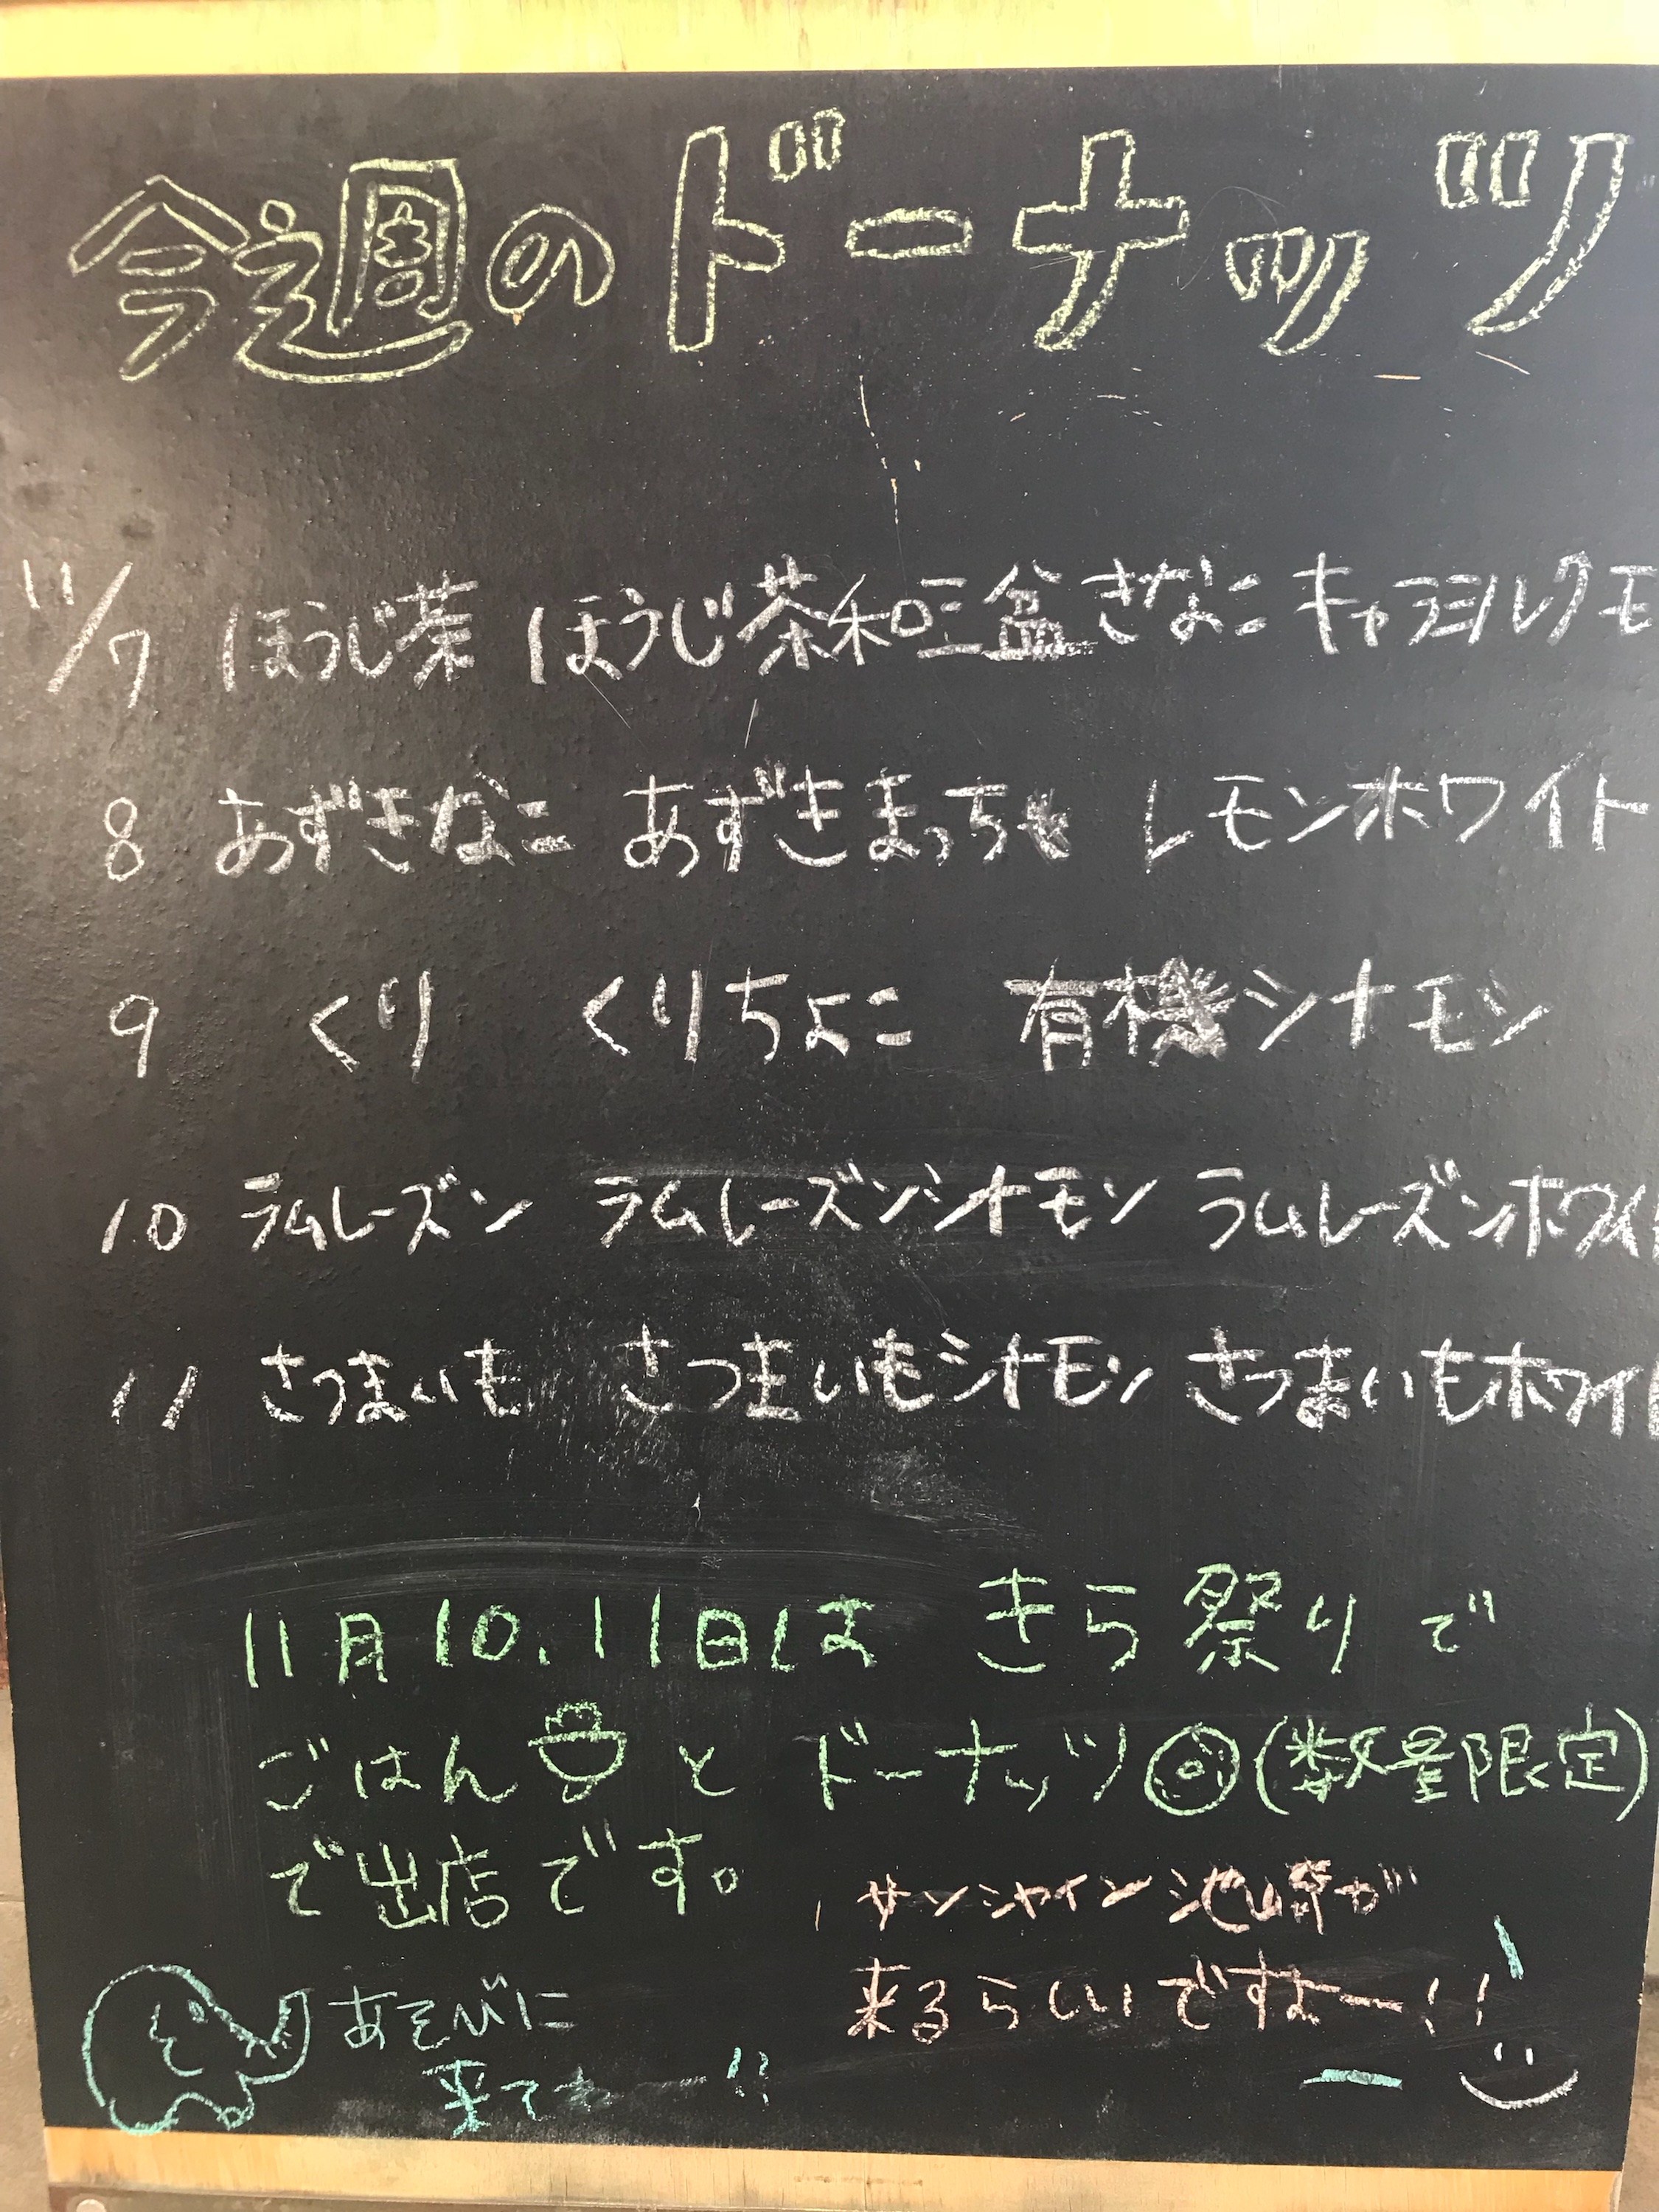 今週のドーナッツ
11/7 ほうじ茶 ほうじ茶和三盆きなこ キャラメルクモ
8 あずきなこ あずきまっちゃ レモンホワイト
9 くり くりちょこ 有機シナモン
10 ラムレーズン ラムレーズンシナモン ラムレーズンホワイト
11 さつまいも さつまいもシナモン さつまいもホワイト
11月10.11日は きら祭りで
ごはんと ドーナッツ(数量限定)
で出店です。
サンシャイン池崎が
来るらしいですよー!!
あそびに
来てねー!!